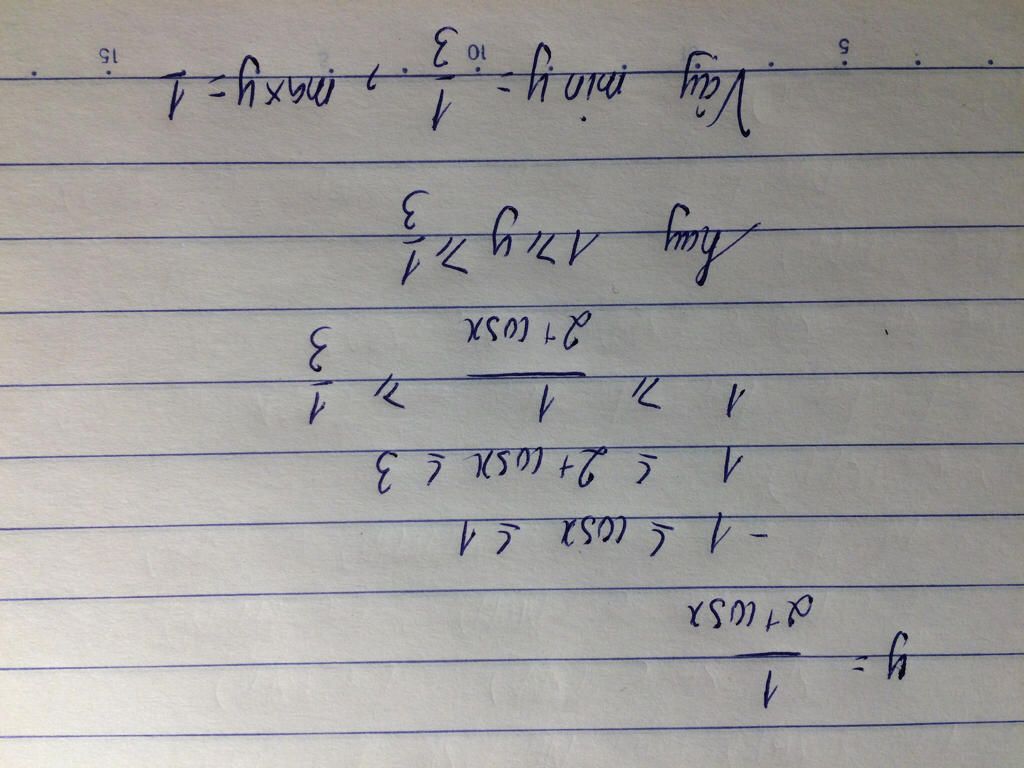 y = 1/(2+cosx)
-1 ≤ cosx ≤ 1
1 ≤ 2+cosx ≤ 3
1 ≥ 1/(2+cosx) ≥ 1/3
hay 1 ≥ y ≥ 1/3
Vậy min y = 1/3, maxy = 1
5 10 15